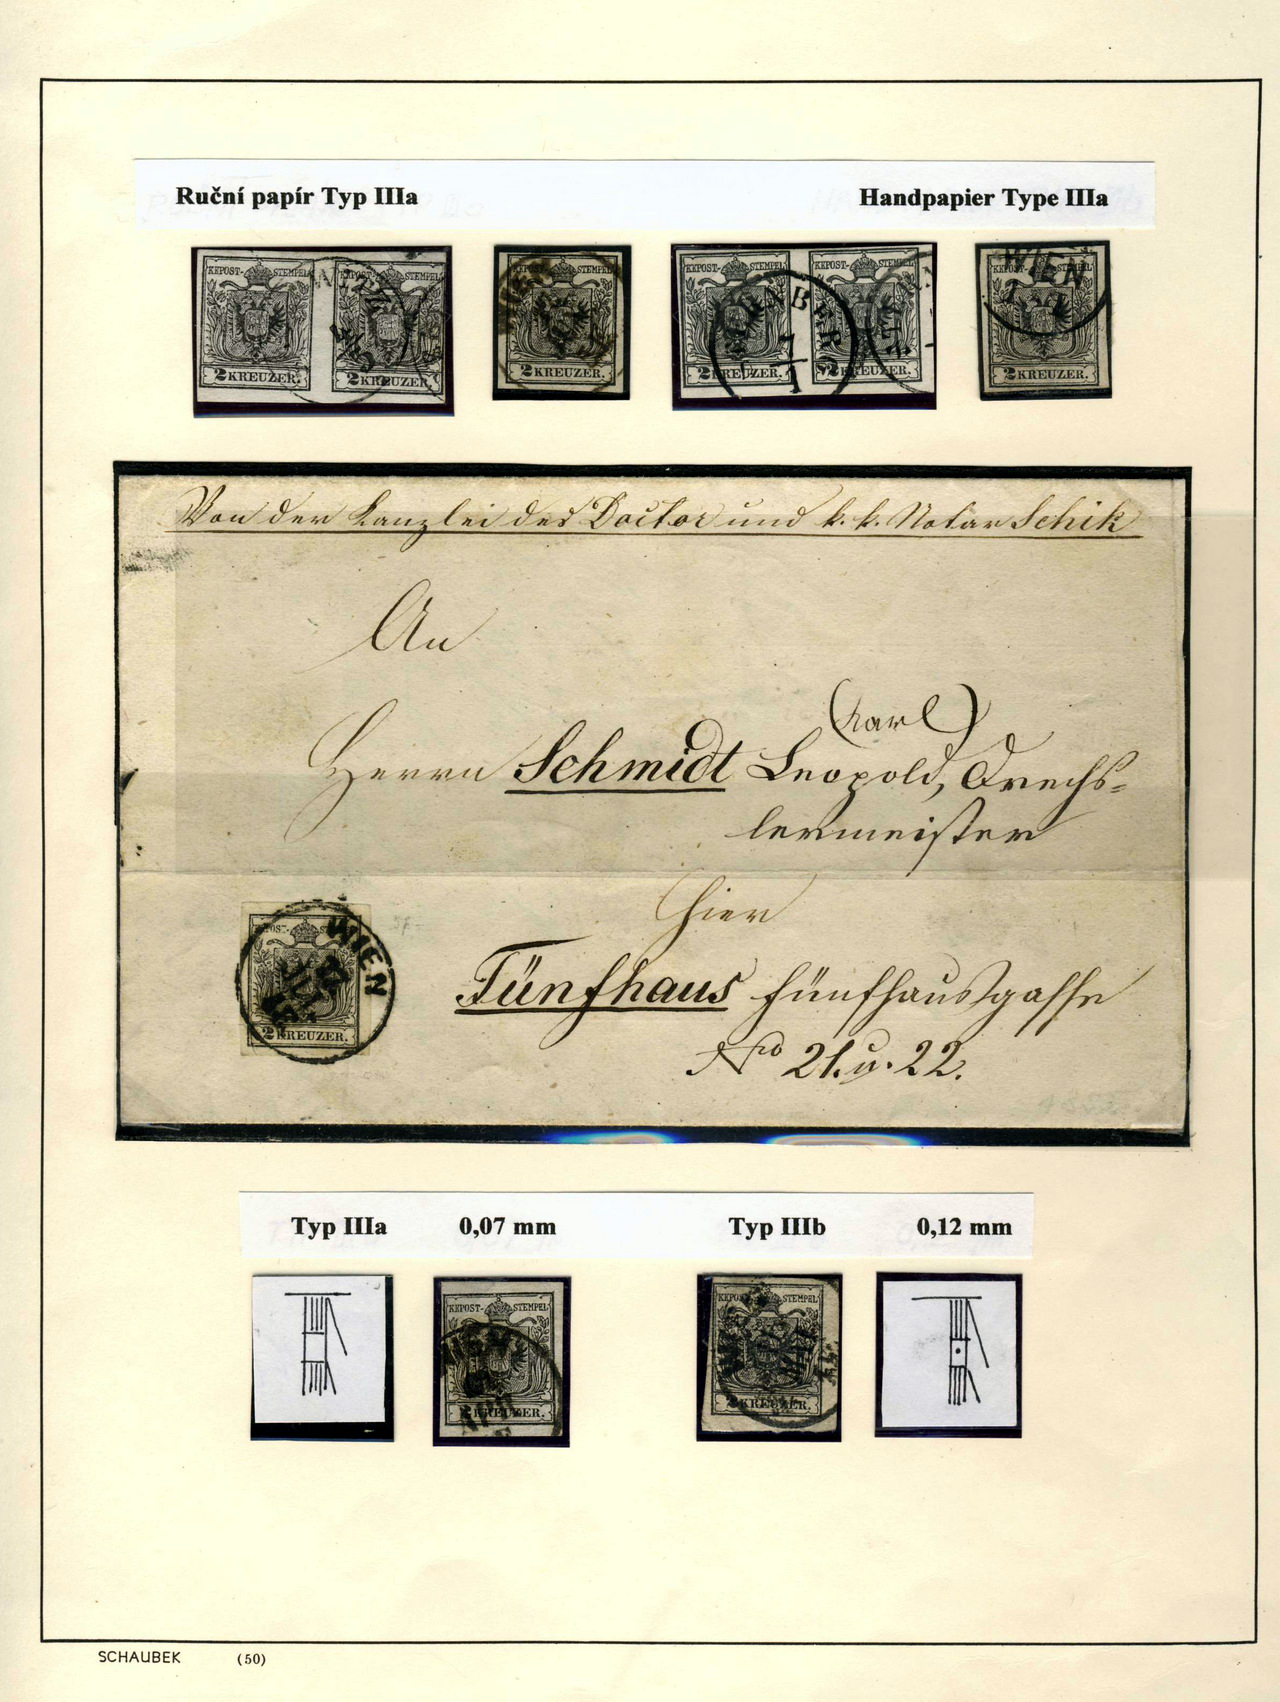 Ruční papír Typ IIIa
Handpapier Type IIIa
KKPOST- STEMPEL
2 KREUZER.
KKPOST- STEMPEL
2 KREUZER.
KKPOST- STEMPEL
2 KREUZER.
KKPOST- STEMPEL
2 KREUZER.
KKPOST- STEMPEL
2 KREUZER.
WIEN
2 KREUZER.
Von der Kanzlei des Doctor und k. k. Notar Schik
An
(Karl)
Herrn Schmidt Leopold, Drechs=
lermeister
hier
Fünfhaus Fünfhausgasse
Nro 21. u. 22.
KKPOST-
WIEN
2 KREUZER.
Typ IIIa 0,07 mm
Typ IIIb 0,12 mm
KKPOST- STEMPEL
2 KREUZER.
KKPOST- STEMPEL
2 KREUZER.
SCHAUBEK (50)